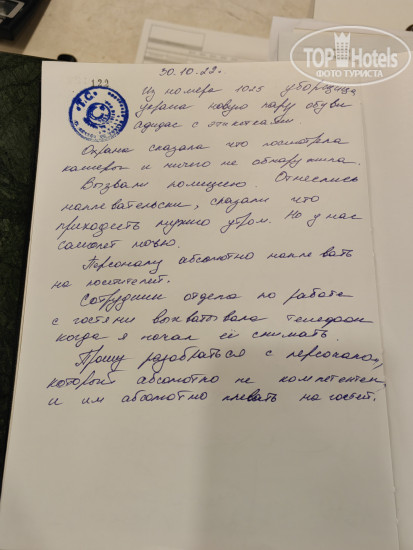 TOPHotels
ФОТО ТУРИСТА
30.10.22г.
129
Из номера 1025 уборщица
украла новую пару обуви
адидас с этикетками.
Охрана сказала что посмотрела
камеры и ничего не обнаружила.
Вызвали полицию. Отнеслись
наплевательски, сказали что
приходить нужно утром. Но у нас
самолет ночью.
Персоналу абсолютно наплевать
на посетителей.
Сотрудники отдела по работе
с гостями выхватывала телефон
когда я начал её снимать.
Прошу разобраться с персоналом,
который абсолютно не компетентен
и им абсолютно плевать на гостей.